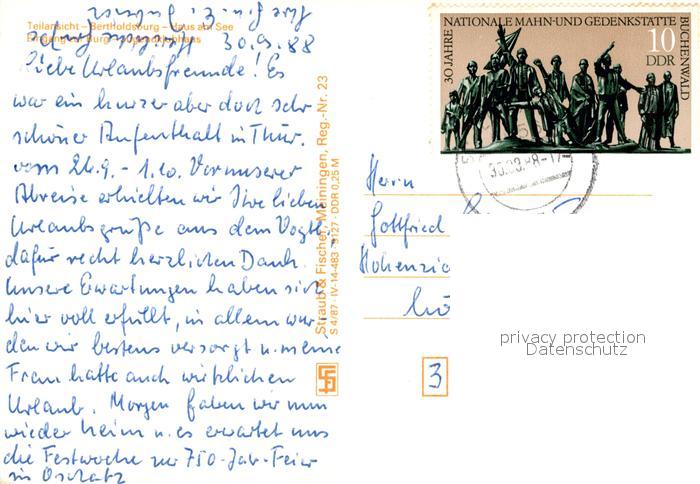 Teilansicht - Bertholdsburg - Haus am See
Eingang zur Burg
30.9.88
Liebe Urlaubsfreunde! Es
war ein kurzer aber doch sehr
schöner Aufenthalt in Thür.
vom 26.9. - 1.10. Vor unserer
Abreise erhielten wir Ihre lieben
Urlaubsgrüße aus dem Vogtl.
dafür recht herzlichen Dank.
Unsere Erwartungen haben sich
hier voll erfüllt, in allem wur-
den wir bestens versorgt u. meine
Frau hatte auch wirklichen
Urlaub. Morgen fahren wir nun
wieder heim u. es erwartet uns
die Festwoche zur 750-Jahr-Feier
in Oschatz
Straub & Fischer, Meiningen, Reg.-Nr. 23
S 4/87 · IV-14-483 · 5127 · DDR 0,25 M
30 JAHRE NATIONALE MAHN-UND GEDENKSTÄTTE BUCHENWALD
10
DDR
30.09.88-17
Herrn
Gottfried
Hohenzie
3
privacy protection
Datenschutz